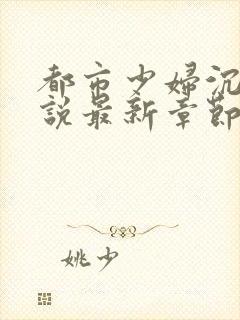 都市少婦沉
說最新章節
姚少